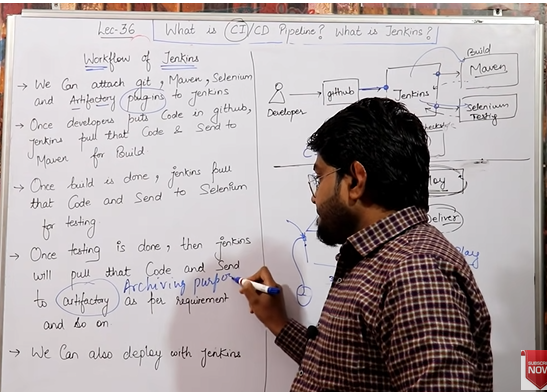 Lec-36
What is CI/CD Pipeline? What is Jenkins?
Workflow of Jenkins
→ We Can attach git, Maven, Selenium
and Artifactory plug-ins to Jenkins
→ Once developers puts Code in github,
Jenkins pull that Code & Send to
Maven for Build
→ Once build is done, jenkins pull
that Code and Send to Selenium
for testing
→ Once testing is done, then jenkins
will pull that Code and Send
Archiving purpo
to artifactory as per requirement
and so on
→ We Can also deploy with Jenkins
Build
Maven
github
Jenkins
Selenium
Testing
Developer
Deliver
SUBSCRIBE
NOW